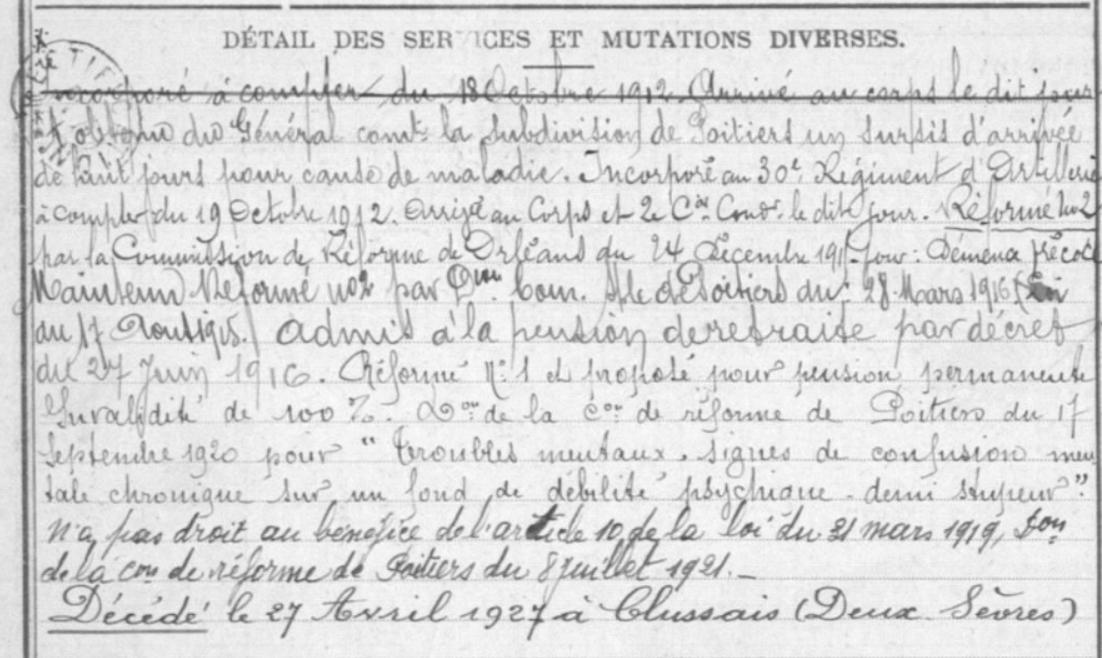 DÉTAIL DES SERVICES ET MUTATIONS DIVERSES.
Incorporé à compter du 18 Octobre 1912. Arrivé au corps le dit jour
A obtenu du Général comt la Subdivision de Poitiers un sursis d'arrivée
de huit jours pour cause de maladie. Incorporé au 30e Régiment d'Artillerie
à compter du 19 Octobre 1912. Arrivé au Corps et 2e Cer Condr le dit jour. Réformé No 2
par la Commission de Réforme de Orléans du 24 Décembre 191 pour : Démence précoce
Maintenu Réformé no 2 par Don Com. Sle de Poitiers du 28 Mars 1916
du 17 Aout 1915.) admis à la pension de retraite par décret
du 27 Juin 1916. Réformé No 1 et proposé pour pension permanente
Invalidité de 100 %. Don de la Con de réforme de Poitiers du 17
Septembre 1920 pour "troubles mentaux. signes de confusion men
tale chronique sur un fond de débilité psychique - demi stupeur".
N'a pas droit au bénéfice de l'article 10 de la loi du 31 mars 1919, Don
de la con de réforme de Poitiers du 8 juillet 1921._
Décédé le 27 Avril 1927 à Clussais (Deux Sèvres)